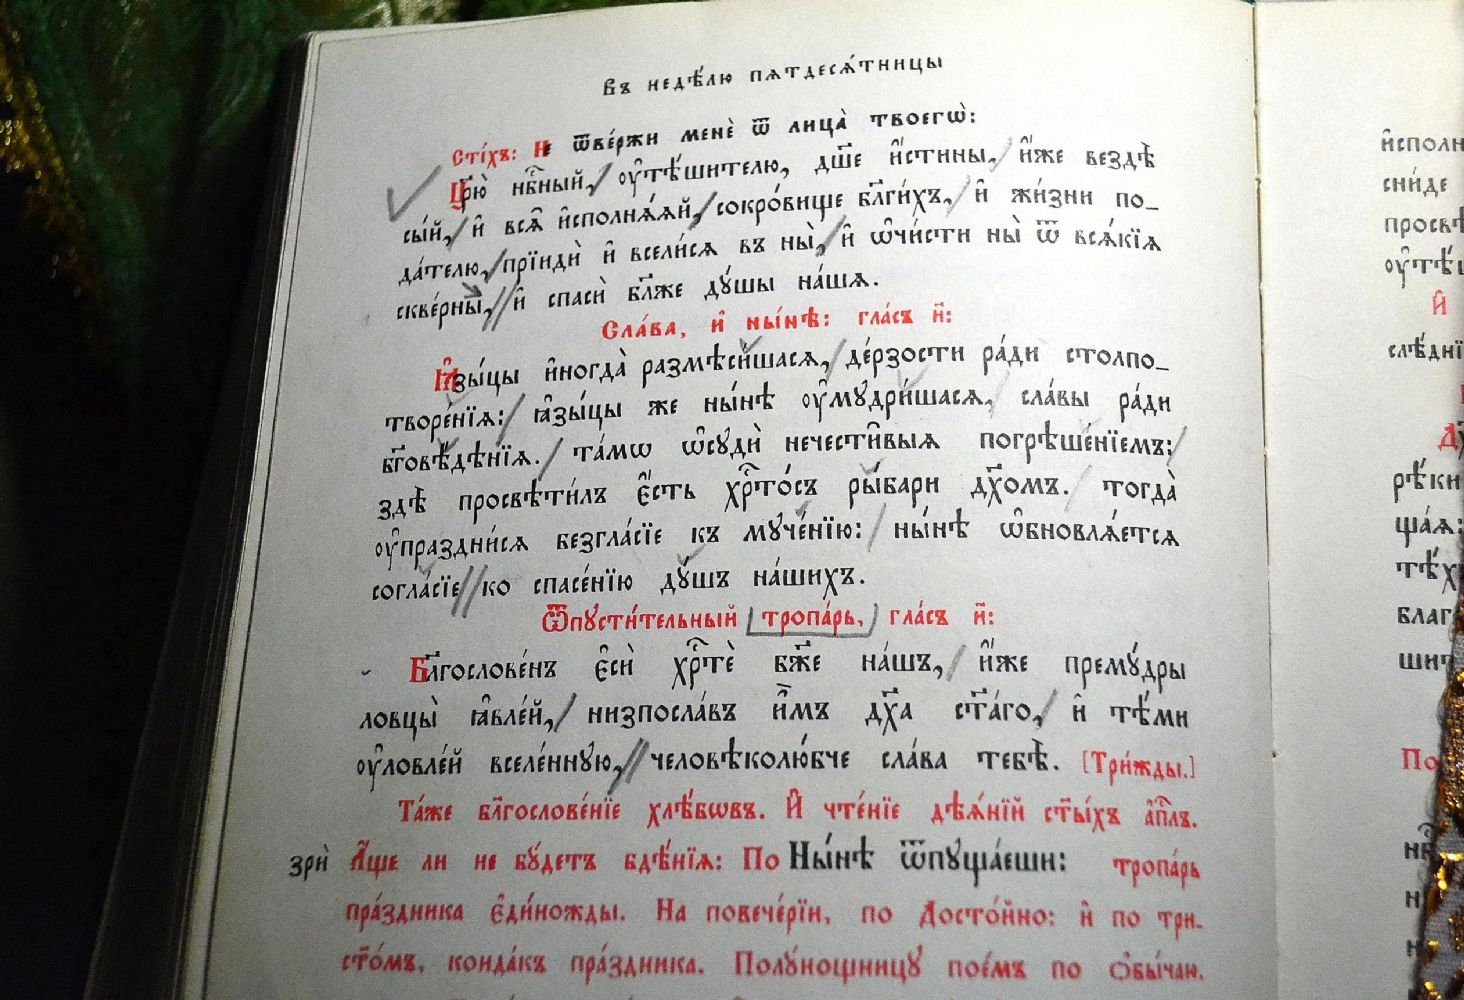 Въ недѣ́лю пѧтдесѧ́тницы
Сті́хъ: Не ѿве́ржи менѐ ѿ лица̀ твоегѡ̀:
Цр҃ю̀ нбⷭ҇ный, ᲂу҆тѣ́шителю, дш҃е и҆́стины, и҆́же вездѣ̀
сы́й, и҆ всѧ̑ и҆сполнѧ́ѧй, сокро́вище бл҃ги́хъ, и҆ жи́зни по_
да́телю, прїидѝ и҆ всели́сѧ въ ны̀, и҆ ѡ҆чи́сти ны̀ ѿ всѧ́кїѧ
скве́рны, и҆ спасѝ бл҃же дꙋ́шы на́шѧ.
Сла́ва, и҆ ны́нѣ: гла́съ и҃:
Ꙗ҆зы́цы и҆ногда̀ размѣси́шасѧ, де́рзости ра́ди столпо_
творе́нїѧ: ꙗ҆зы́цы же ны́нѣ ᲂу҆мꙋдри́шасѧ, сла́вы ра́ди
бг҃овѣ́дѣнїѧ. та́мѡ ѡ҆сꙋдѝ нечести̑выѧ погрѣше́нїемъ:
здѣ̀ просвѣти́лъ є҆́сть хрⷭ҇то́съ ры́бари дх҃омъ. тогда̀
ᲂу҆праздни́сѧ безгла́сїе къ мꙋче́нїю: ны́нѣ ѡ҆бновлѧ́етсѧ
согла́сїе ко спасе́нїю дꙋ́шъ на́шихъ.
Ѿпꙋсти́тельный тропа́рь, гла́съ и҃:
Бл҃гослове́нъ є҆сѝ хрⷭ҇тѐ бж҃е на́шъ, и҆́же премꙋ́дры
ловцы̀ ꙗ҆вле́й, низпосла́въ и҆̀мъ дх҃а ст҃а́го, и҆ тѣ́ми
ᲂу҆ловле́й вселе́ннꙋю, человѣколю́бче сла́ва тебѣ̀. [Три́жды.]
Та́же бл҃гослове́нїе хлѣ́бѡвъ. И҆ чте́нїе дѣѧ́нїй ст҃ы́хъ а҆пⷭ҇лъ.
зрѝ А҆́ще ли не бꙋ́детъ бдѣ́нїѧ: По Ны́нѣ ѿпꙋща́еши: тропа́рь
пра́здника є҆ди́ножды. На повече́рїи, по Досто́йно: и҆ по три_
ст҃о́мъ, конда́къ пра́здника. Полꙋно́щницꙋ пое́мъ по ѻ҆бы́чаю.
и҆сполн
сни́де
просвѣ
ᲂу҆тѣ́ш
И҆
слѣ́днї
рѣ́ки
щаѧ:
тѣ́х
благ
шит
По